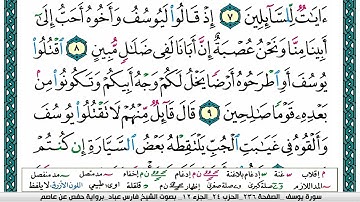 ءَايَٰتٞ لِّلسَّآئِلِينَ ٧ إِذۡ قَالُواْ لَيُوسُفُ وَأَخُوهُ أَحَبُّ إِلَىٰٓ
أَبِينَا مِنَّا وَنَحۡنُ عُصۡبَةٌ إِنَّ أَبَانَا لَفِي ضَلَٰلٖ مُّبِينٍ ٨ ٱقۡتُلُواْ
يُوسُفَ أَوِ ٱطۡرَحُوهُ أَرۡضٗا يَخۡلُ لَكُمۡ وَجۡهُ أَبِيكُمۡ وَتَكُونُواْ مِنۢ
بَعۡدِهِۦ قَوۡمٗا صَٰلِحِينَ ٩ قَالَ قَآئِلٞ مِّنۡهُمۡ لَا تَقۡتُلُواْ يُوسُفَ
وَأَلۡقُوهُ فِي غَيَٰبَتِ ٱلۡجُبِّ يَلۡتَقِطۡهُ بَعۡضُ ٱلسَّيَّارَةِ إِن كُنتُمۡ
سورة يوسف الصفحة ٢٣٦ الحزب ٢٤ الجزء ١٢ بصوت الشيخ فارس عباد برواية حفص عن عاصم